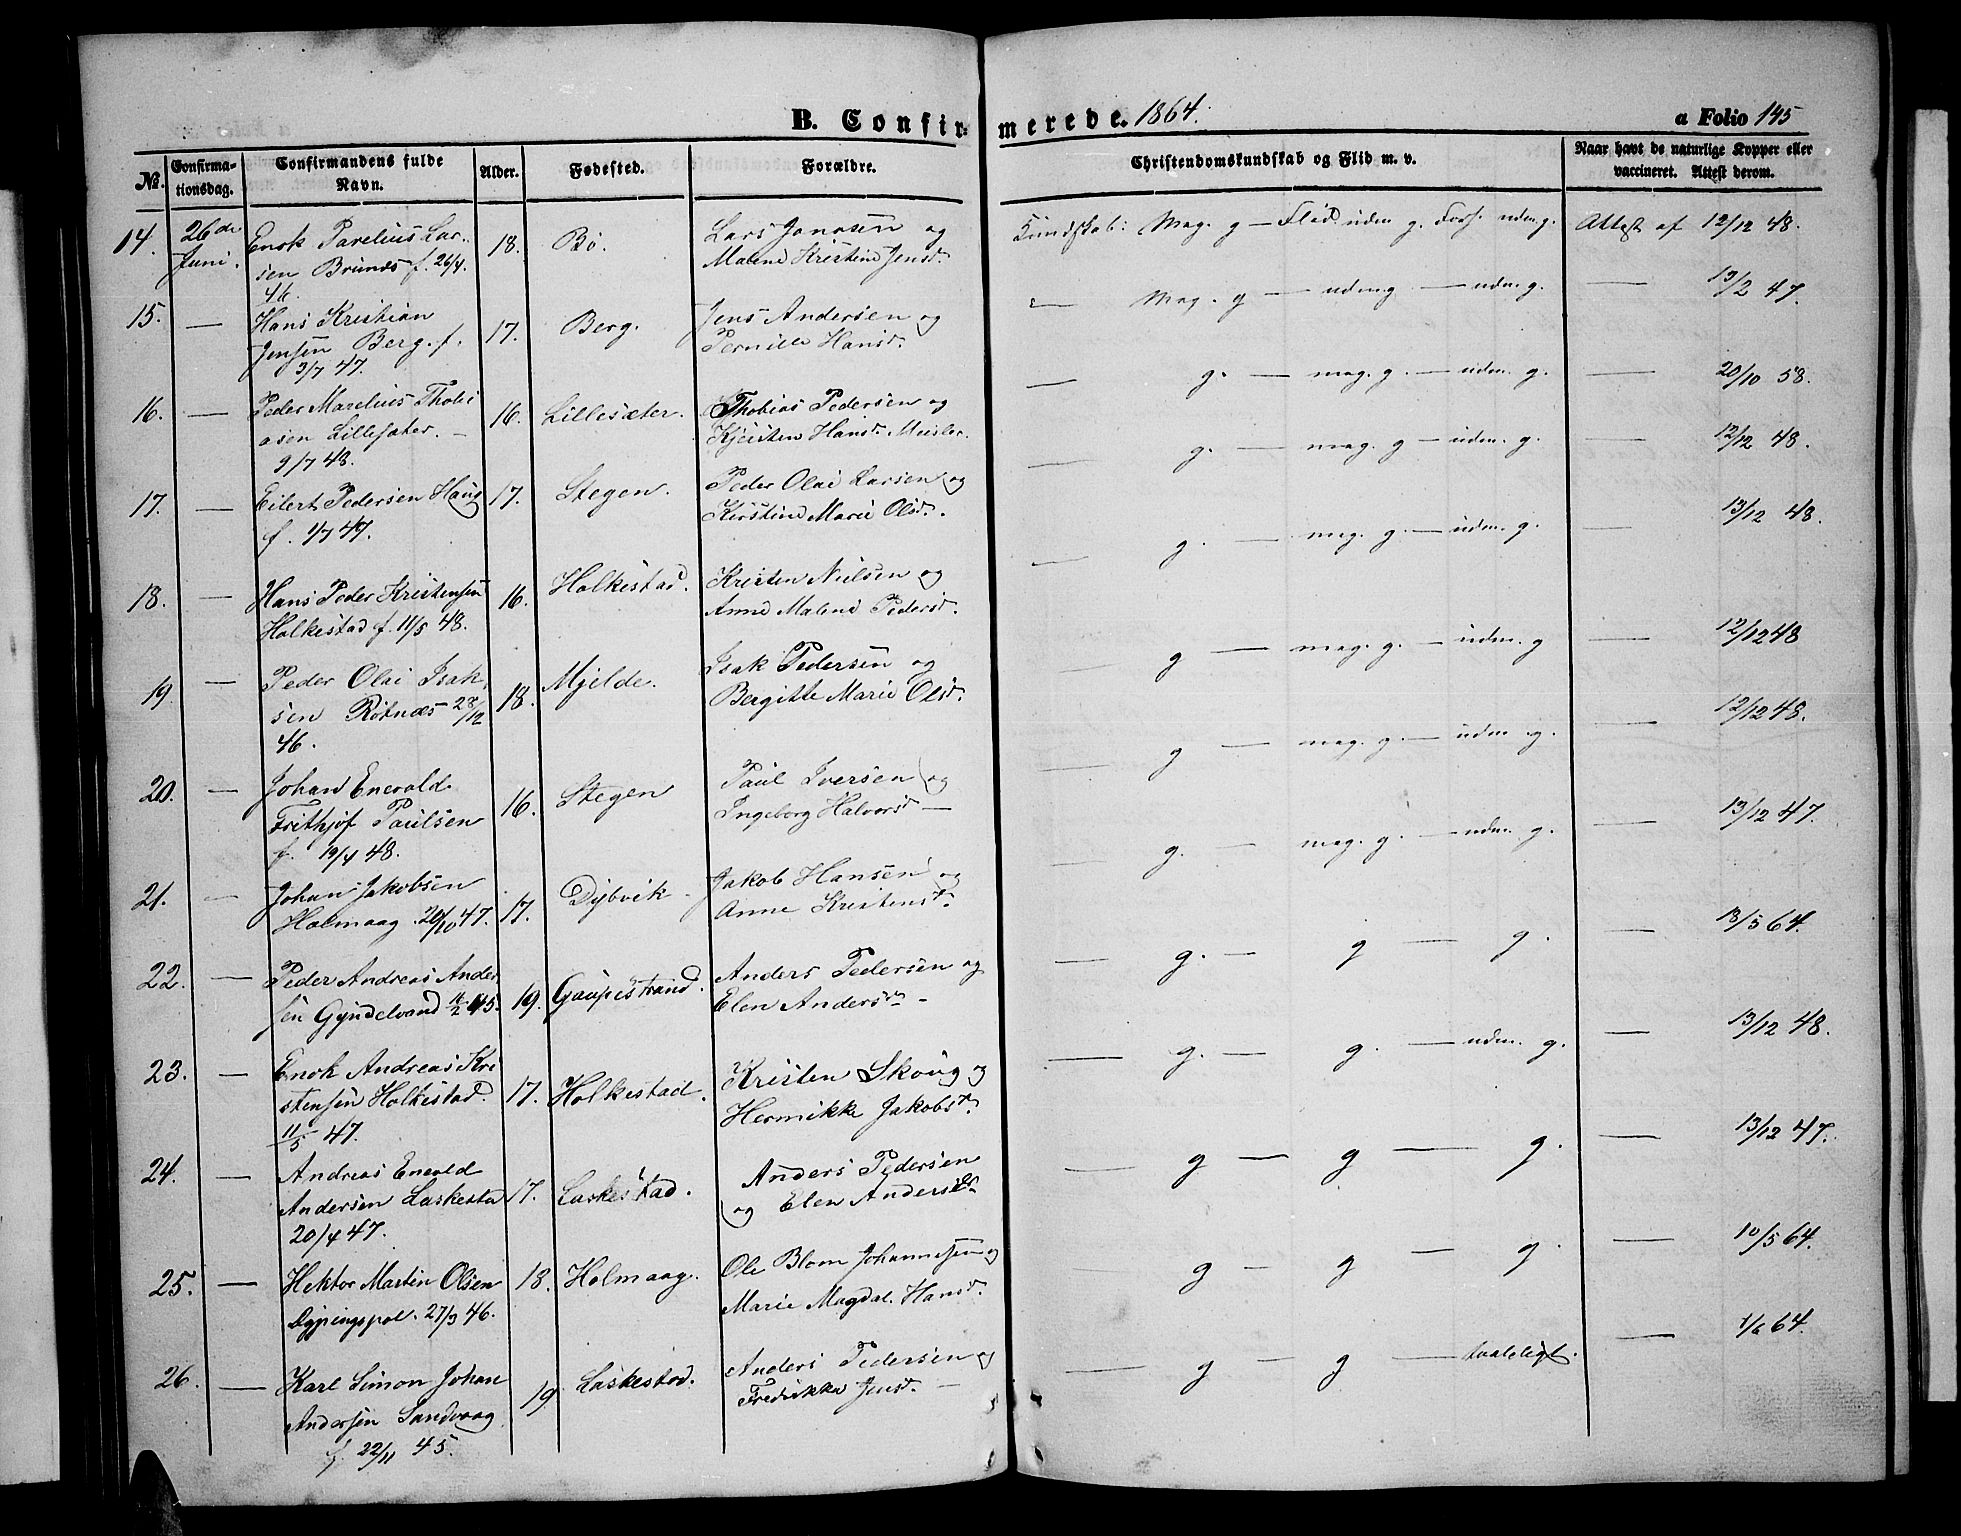 B. Confirmerede. 1864. a Folio 145
No. Confirmationsdag. Confirmandens fulde Navn. Alder. Fødested. Forældre. Christendomskundskab og Flid m. v. Naar havt de naturlige Kopper eller vaccineret. Attest derom.
14. 26de Enok Parelius Lar- 18. Bø. Lars Jonasen og Kundskab: Mag. g — Flid uden g. Forh. udm. g. Attest af 12/12 48.
Juni. sen Brunæs f. 26/4. Malene Kristine Jensd.
46.
15. — Hans Kristian 17. Berg. Jens Andersen og — Mag. g — udm. g — udm. g. — 13/2 47.
Jensen Berg. f. Pernille Hansd.
3/7 47.
16. — Peder Marelius Thobi 16. Lillesæter. Thobias Pedersen og — g. — mag. g. — udm. g. — 20/10 58.
asen Lillesæter. — Kjersten Hansd. Meisler.
9/7 48.
17. — Eilert Pedersen Haug 17. Stegen. Peder Olai Larsen og — g. — mag. g — udm. g. — 12/12 48.
f. 1/7 47. Kirstine Marie Olsd.
18. — Hans Peder Kristensen 16. Holkestad. Kristen Nielsen og — g. — mag. g. — udm. g. — 13/12 48.
Holkestad f. 11/5 48. Anne Malene Pedersd.
19. — Peder Olai Isak 18. Mjelde. Isak Pedersen og — g — mag. g. — udm. g — 12/12 48
sen Røtnæs 28/12 Bergitte Marie Olsd.
46.
20. — Johan Enevold 16. Stegen Paul Iversen og — g — mag. g. — udm. g. — 12/12 48.
Frithjof Paulsen Ingeborg Halvorsd —
f. 19/4 48.
21. — Johan Jakobsen 17. Dybvik — Jakob Hansen og — g. — mag. g. — udm. g. — 13/12 47.
Holmaag. 20/10 47. Anne Kristensd.
22. — Peder Andreas Ander 19. Gaupestrand. Anders Pedersen og — g. — g — g. — 18/5 64.
sen Gyndelvand 11/2 45. Elen Andersd. —
23. — Enok Andreas Kri 17. Holkestad. Kristen Skoug og — g. — g. — udm. g. — 13/12 48.
stensen Holkestad. Hermikke Jakobsd.
11/5 47.
24. — Andreas Enevold 17. Laskestad. Anders Pedersen — g — g — g. — 13/12 47.
Andersen Laskesta og Elen Andersd.
20/4 47.
25. — Hektor Martin Olsen 18. Holmaag. Ole Blom Johannesen og — g — g — g. — 10/5 64.
Dypingspol. 27/3 46. Marie Magdal. Hansd.
26. — Karl Simon Johan 19 Laskestad. Anders Pedersen og — g — g — taaleligt. — 1/6 64.
Andersen Sandvaag Fredrikka Jensd. —
f. 22/11 45.